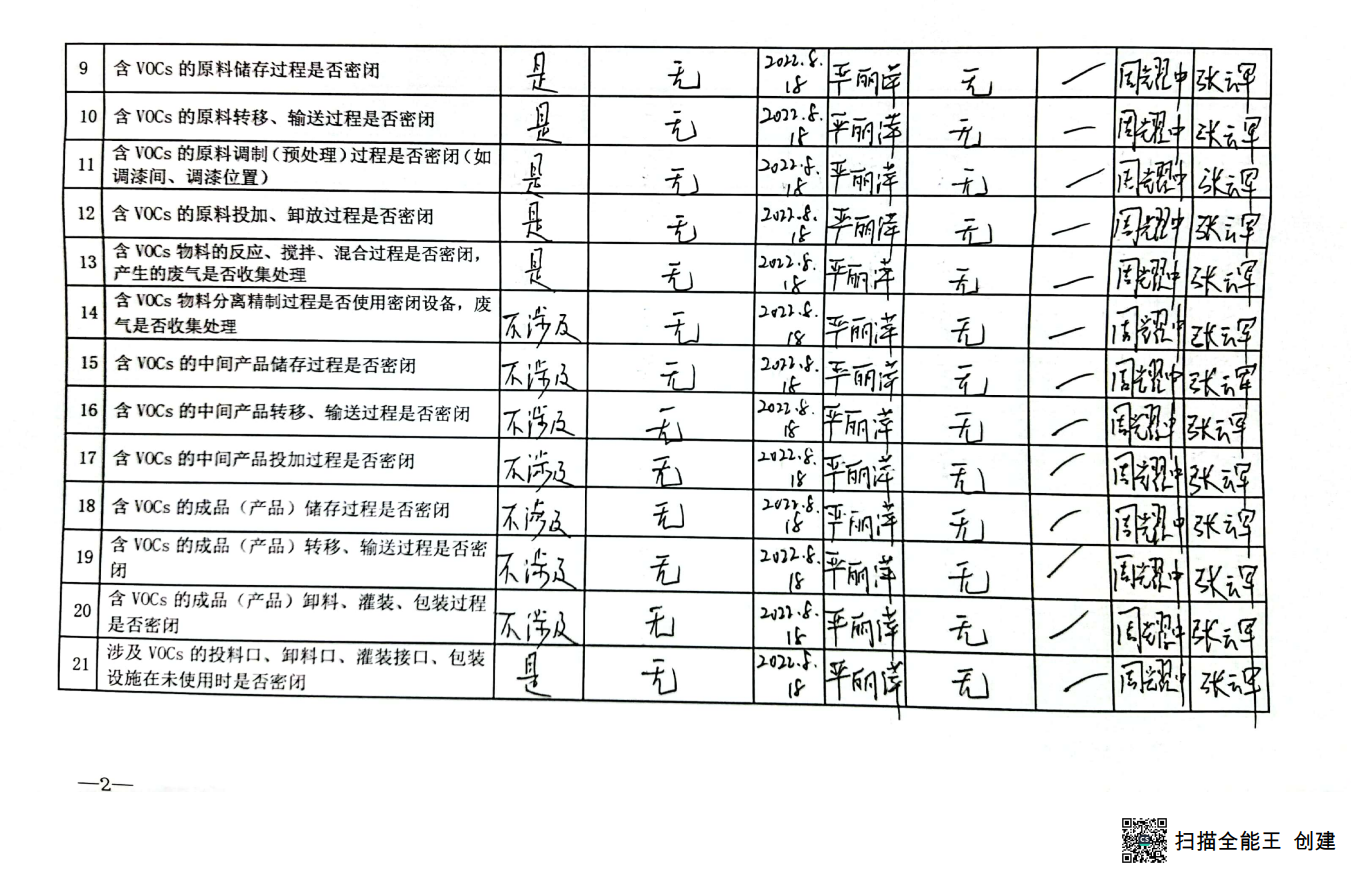 9 含 VOCs 的原料储存过程是否密闭 是 无 2022.8.18 严丽萍 无 / 周耀中 张云军
10 含 VOCs 的原料转移、输送过程是否密闭 是 无 2022.8.18 严丽萍 无 — 周耀中 张云军
11 含 VOCs 的原料调制(预处理)过程是否密闭(如
调漆间、调漆位置) 是 无 2022.8.18 严丽萍 无 / 周耀中 张云军
12 含 VOCs 的原料投加、卸放过程是否密闭 是 无 2022.8.18 严丽萍 无 — 周耀中 张云军
13 含 VOCs 物料的反应、搅拌、混合过程是否密闭,
产生的废气是否收集处理 是 无 2022.8.18 严丽萍 无 — 周耀中 张云军
14 含 VOCs 物料分离精制过程是否使用密闭设备,废
气是否收集处理 不涉及 无 2022.8.18 严丽萍 无 — 周耀中 张云军
15 含 VOCs 的中间产品储存过程是否密闭 不涉及 无 2022.8.18 严丽萍 无 / 周耀中 张云军
16 含 VOCs 的中间产品转移、输送过程是否密闭 不涉及 无 2022.8.18 严丽萍 无 / 周耀中 张云军
17 含 VOCs 的中间产品投加过程是否密闭 不涉及 无 2022.8.18 严丽萍 无 / 周耀中 张云军
18 含 VOCs 的成品(产品)储存过程是否密闭 不涉及 无 2022.8.18 严丽萍 无 / 周耀中 张云军
19 含 VOCs 的成品(产品)转移、输送过程是否密
闭 不涉及 无 2022.8.18 严丽萍 无 / 周耀中 张云军
20 含 VOCs 的成品(产品)卸料、灌装、包装过程
是否密闭 不涉及 无 2022.8.18 严丽萍 无 / 周耀中 张云军
21 涉及 VOCs 的投料口、卸料口、灌装接口、包装
设施在未使用时是否密闭 是 无 2022.8.18 严丽萍 无 / 周耀中 张云军
—2—
扫描全能王 创建